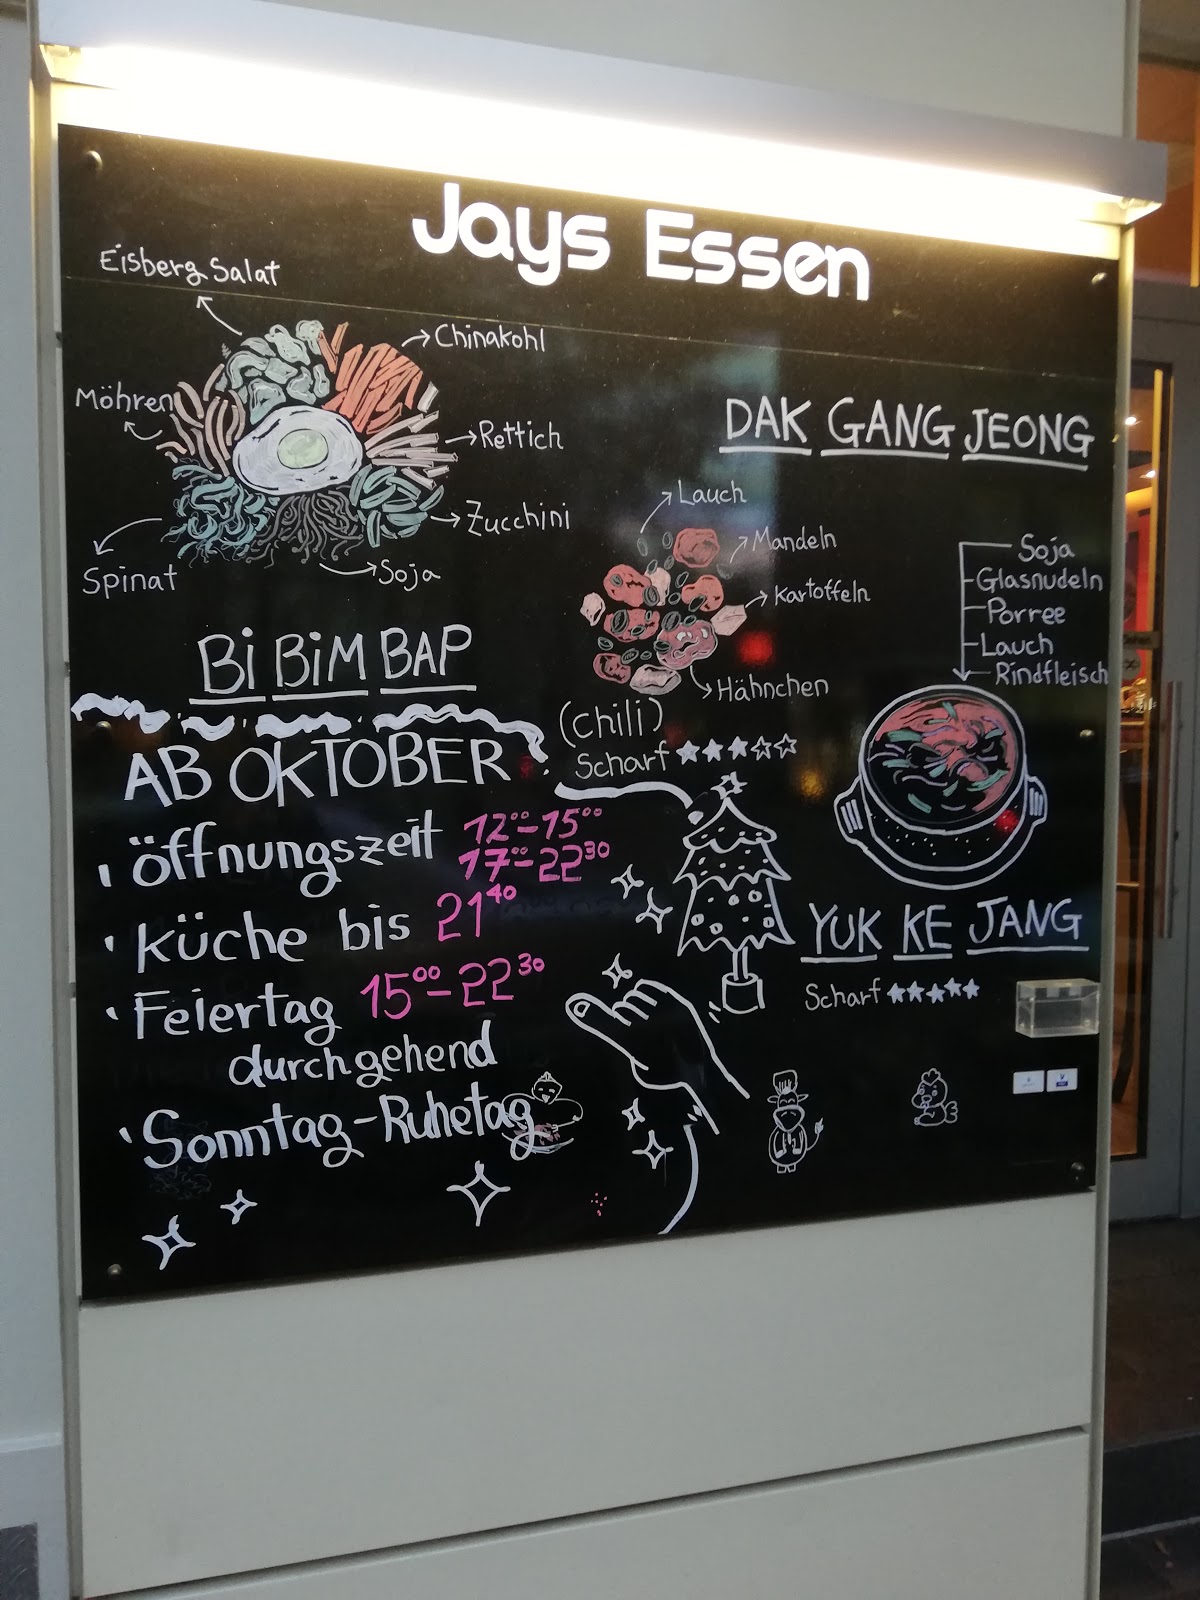 Jays Essen
Eisberg Salat
Chinakohl
Möhren
Rettich
Zucchini
Spinat
Soja
Bi BiM BAP
DAK GANG JEONG
Lauch
Mandeln
Kartoffeln
Hähnchen
(Chili)
Scharf ★★★☆☆
Soja
Glasnudeln
Porree
Lauch
Rindfleisch
YUK KE JANG
Scharf ★★★★★
AB OKTOBER
öffnungszeit 12⁰⁰-15⁰⁰
17⁰⁰-22³⁰
küche bis 21⁴⁰
Feiertag 15⁰⁰-22³⁰
durchgehend
Sonntag-Ruhetag